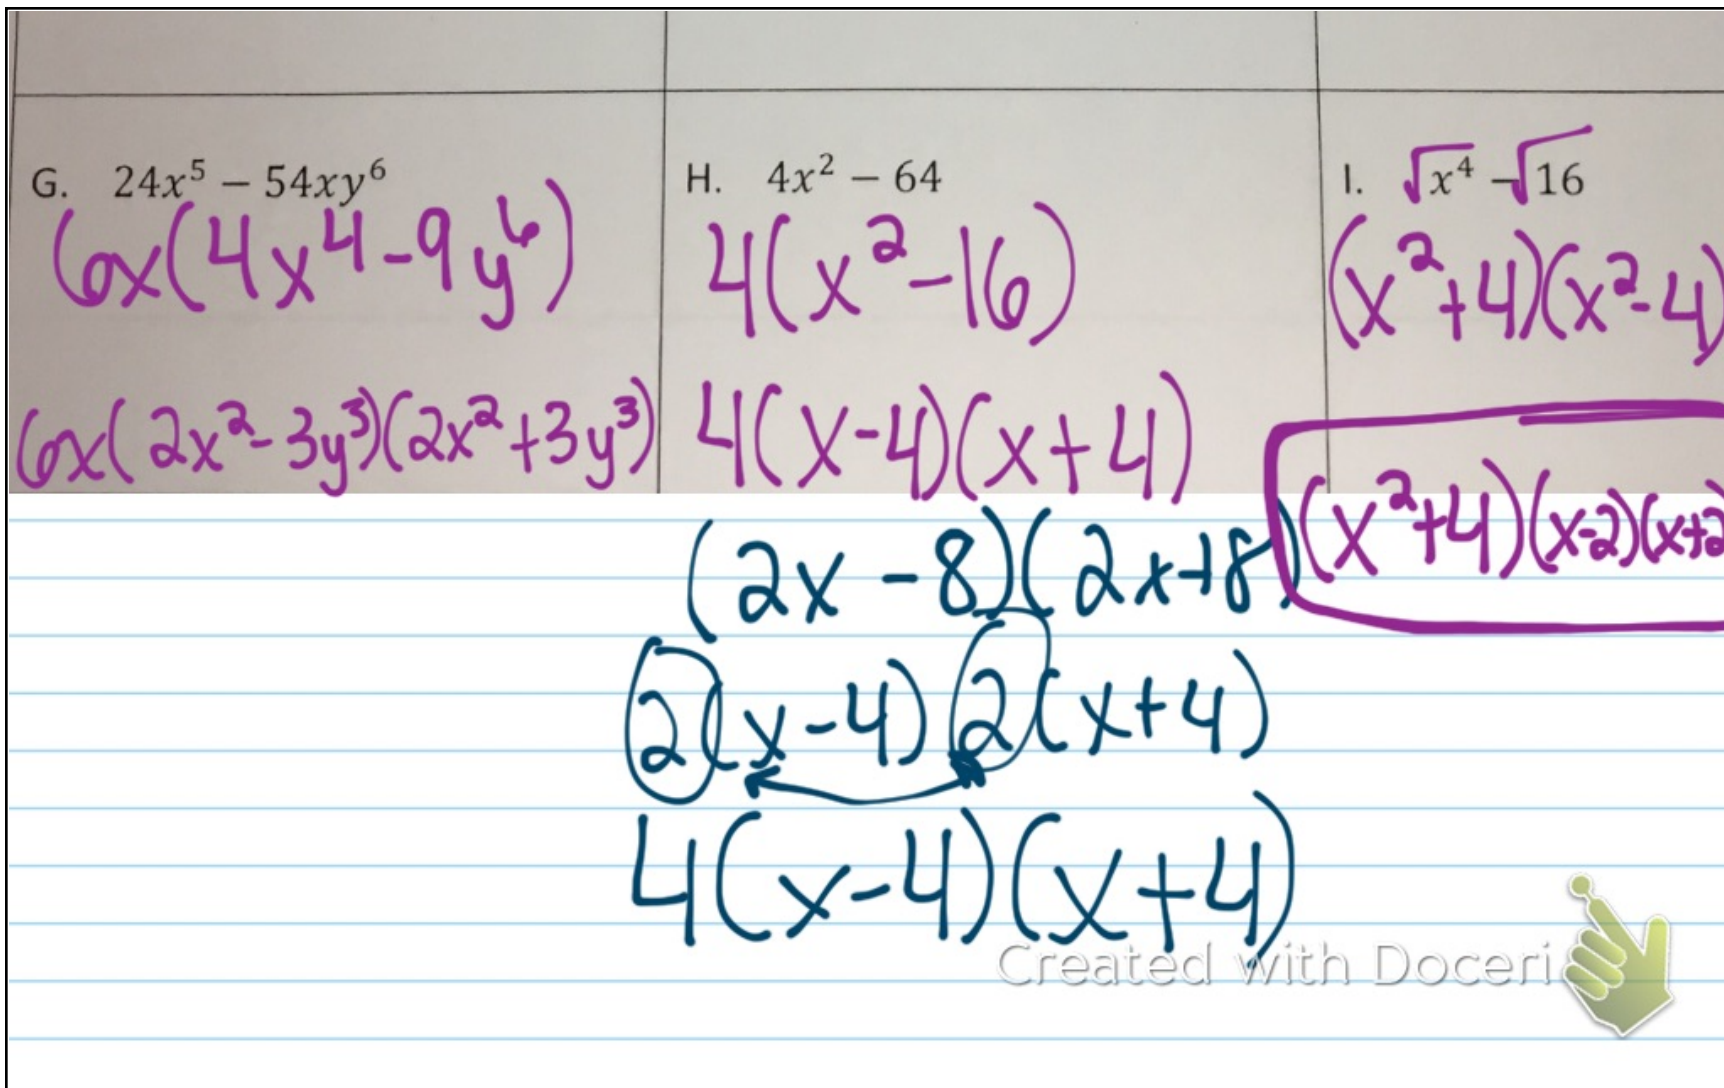 G. 24x⁵ – 54xy⁶
6x(4x⁴-9y⁶)
6x(2x²-3y³)(2x²+3y³)
H. 4x² – 64
4(x²-16)
4(x-4)(x+4)
(2x-8)(2x+8)
2(x-4)2(x+4)
4(x-4)(x+4)
I. √x⁴ – √16
(x²+4)(x²-4)
(x²+4)(x-2)(x+2
Created with Doceri